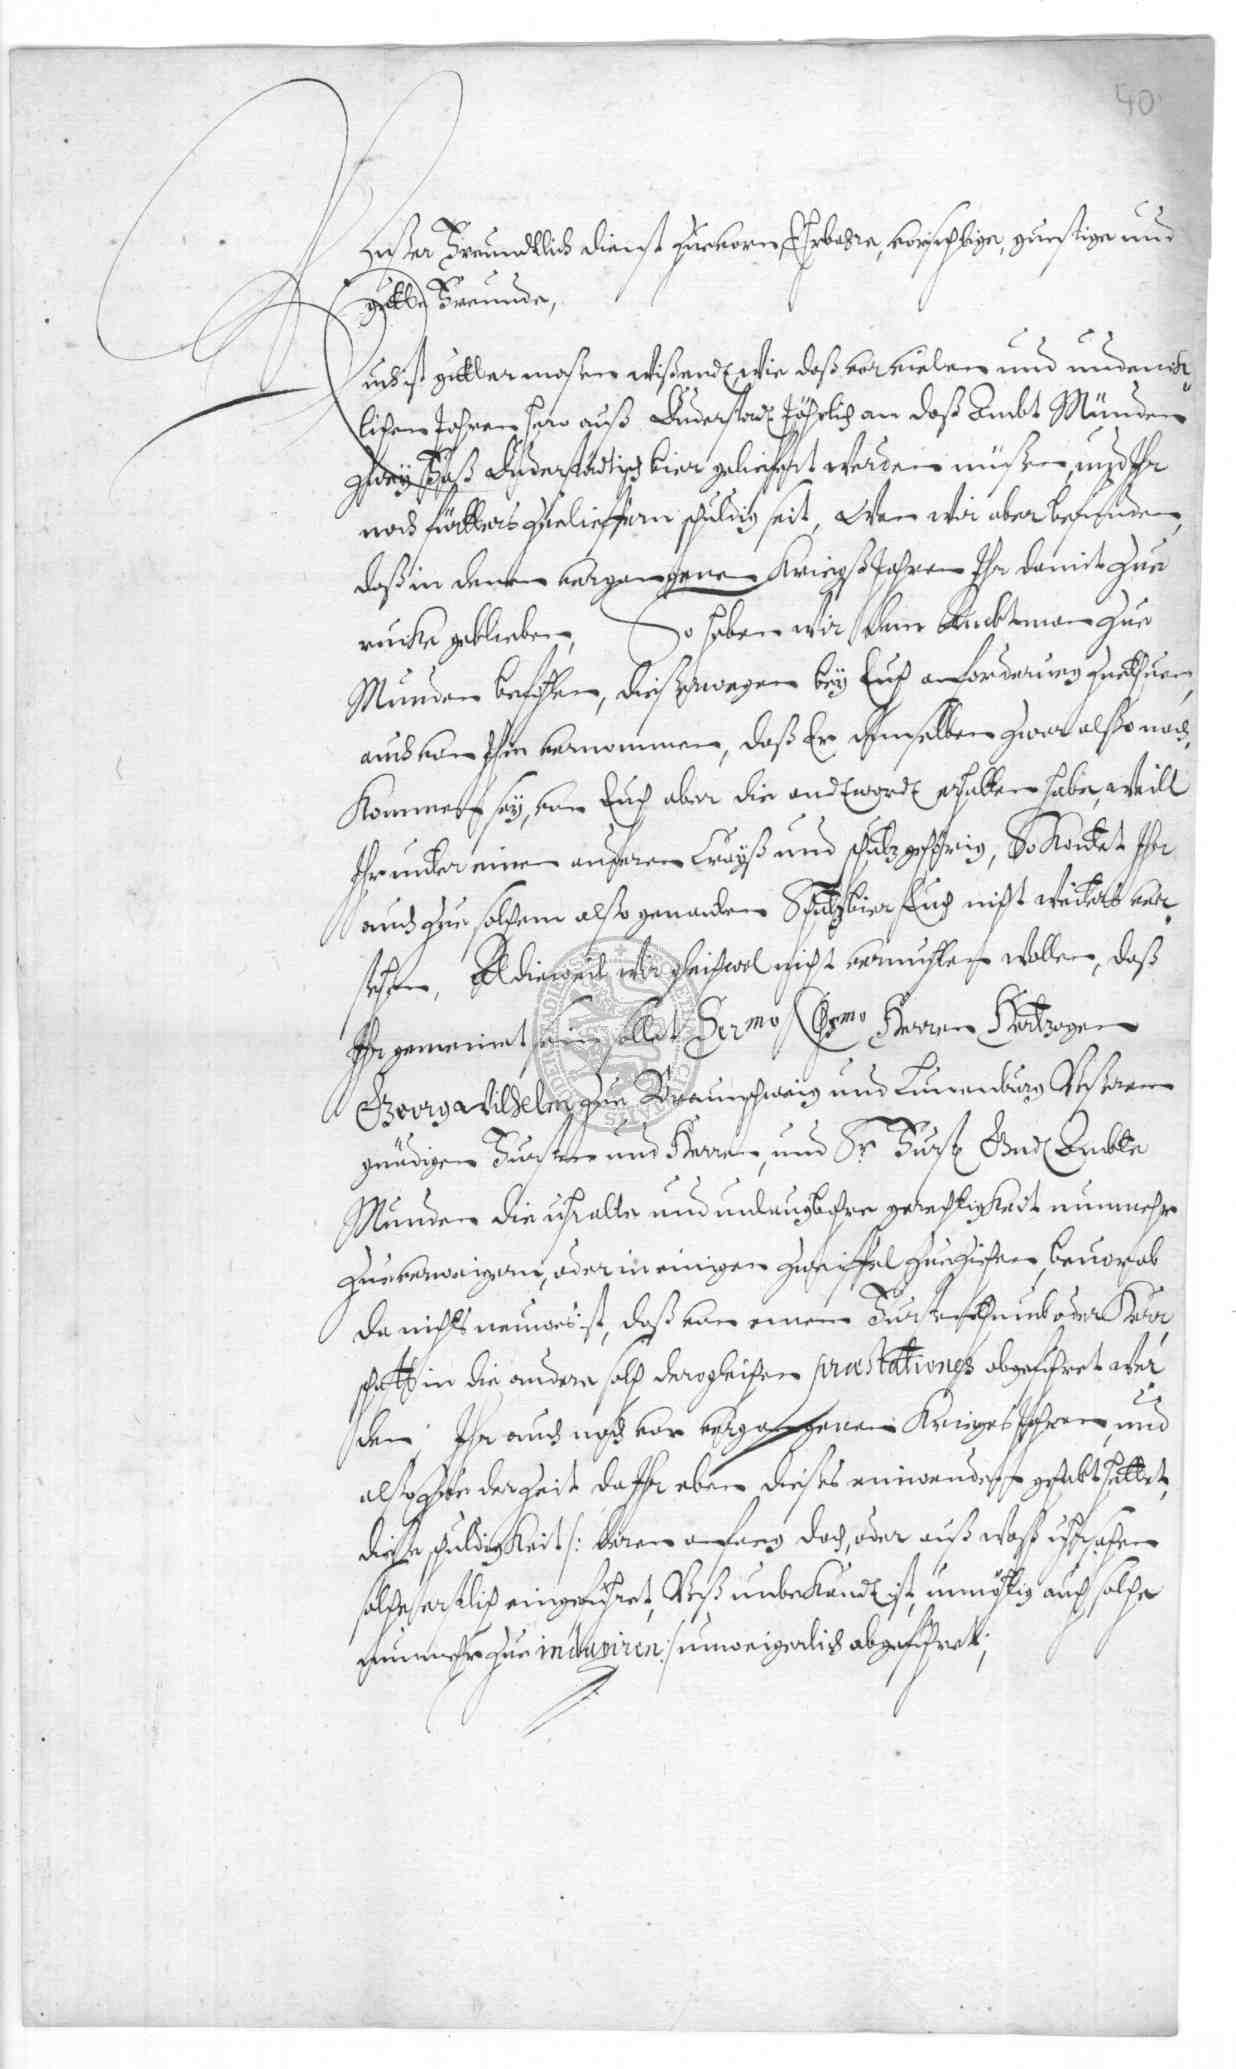 40
Unser Freundtlich dienst zuevorn, Ehrbahre, vorsichtige, gunstige und
gutte Freunde,
Euch ist gutter maßen wißendt, wie daß vor vielen und undenck-
lichen Jahren hero auß Duderstadt Jährlich an daß Ambt Münden
zweÿ Faß Duderstädtisch bier geliefert werden müßen, und Ihr
noch fürters zuelieffern schuldig seit, Wan wir aber befinden,
daß in denen vergangenen KriegsJahren Ihr damit zue
rucke geblieben, So haben wir dem Ambtman zue
Munden befohlen, dieserwegen beÿ Euch anforderung zuethuen,
auch von Ihm vernommen, daß Er demselben zwar also nach,
kommen seÿ, von Euch aber die andtwordt erhalten habe, weill
Ihr unter einen anderen Creÿß und schutz gehörig, So köntet Ihr
auch zue solchem also genanden Schutzbier Euch nicht weiters ver,
stehen, Alldieweil wir gleichwol nicht vermuhten wollen, daß
Ihr gemeinet sein sollet Sermo Herren Hertzogen
Georg Wilhelm zue Braunschweig und Lunenburg Unserem
gnädigen Fursten und Herren, und Sr Furstl Gnd Ambte
Munden die uhralte und unlaugbahre gerechtigkeit nunmehr
zueverweigern, oder in einigen zweiffel zueziehen, bevorab
da nichts neuwes ist, daß von einem Furstenthumb oder Herr,
schafft in die andere solch dergleichen præstationes abgeführet wer
den, Ihr auch noch vor vergangenen Krieges Jahren, und
also zue der Zeit da Ihr eben dieses einwenden gehabt hettet,
diese schuldigkeit /: deren anfang doch, oder auß waß uhrsachen
solche erstlich eingeführet, Unß unbekandt ist, unnöhtig auch solche
nunmehr zue inquiriren :/ unweigerlich abgeführet;